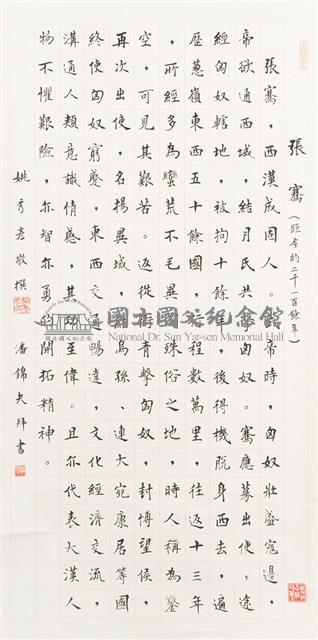 張騫(距今約二千一百餘年)
張騫,西漢成固人。帝時,匈奴壯盛寇邊,
帝欲通西域,結月氏共匈奴。騫應募出使,途
經匈奴轄地,被拘十餘後得機脫去,遍
歷蔥嶺東西五十餘國程數萬里,往返十三年
,所經多為蠻荒不毛異殊俗之地,時人稱為鑿
空,可見其艱苦。返從青擊匈奴,封博望侯,
再次出使,名揚異域,烏孫、連大宛康居等國
終使匈奴窮蹙,東西交通暢達,文化經濟交流,
溝通人類意識情感,其功至偉。且亦代表大漢人
物不懼艱險,亦智亦勇的開拓精神。
姚秀彥敬撰 潘錦夫拜書
國立國父紀念館
National Dr. Sun Yat-sen Memorial Hall